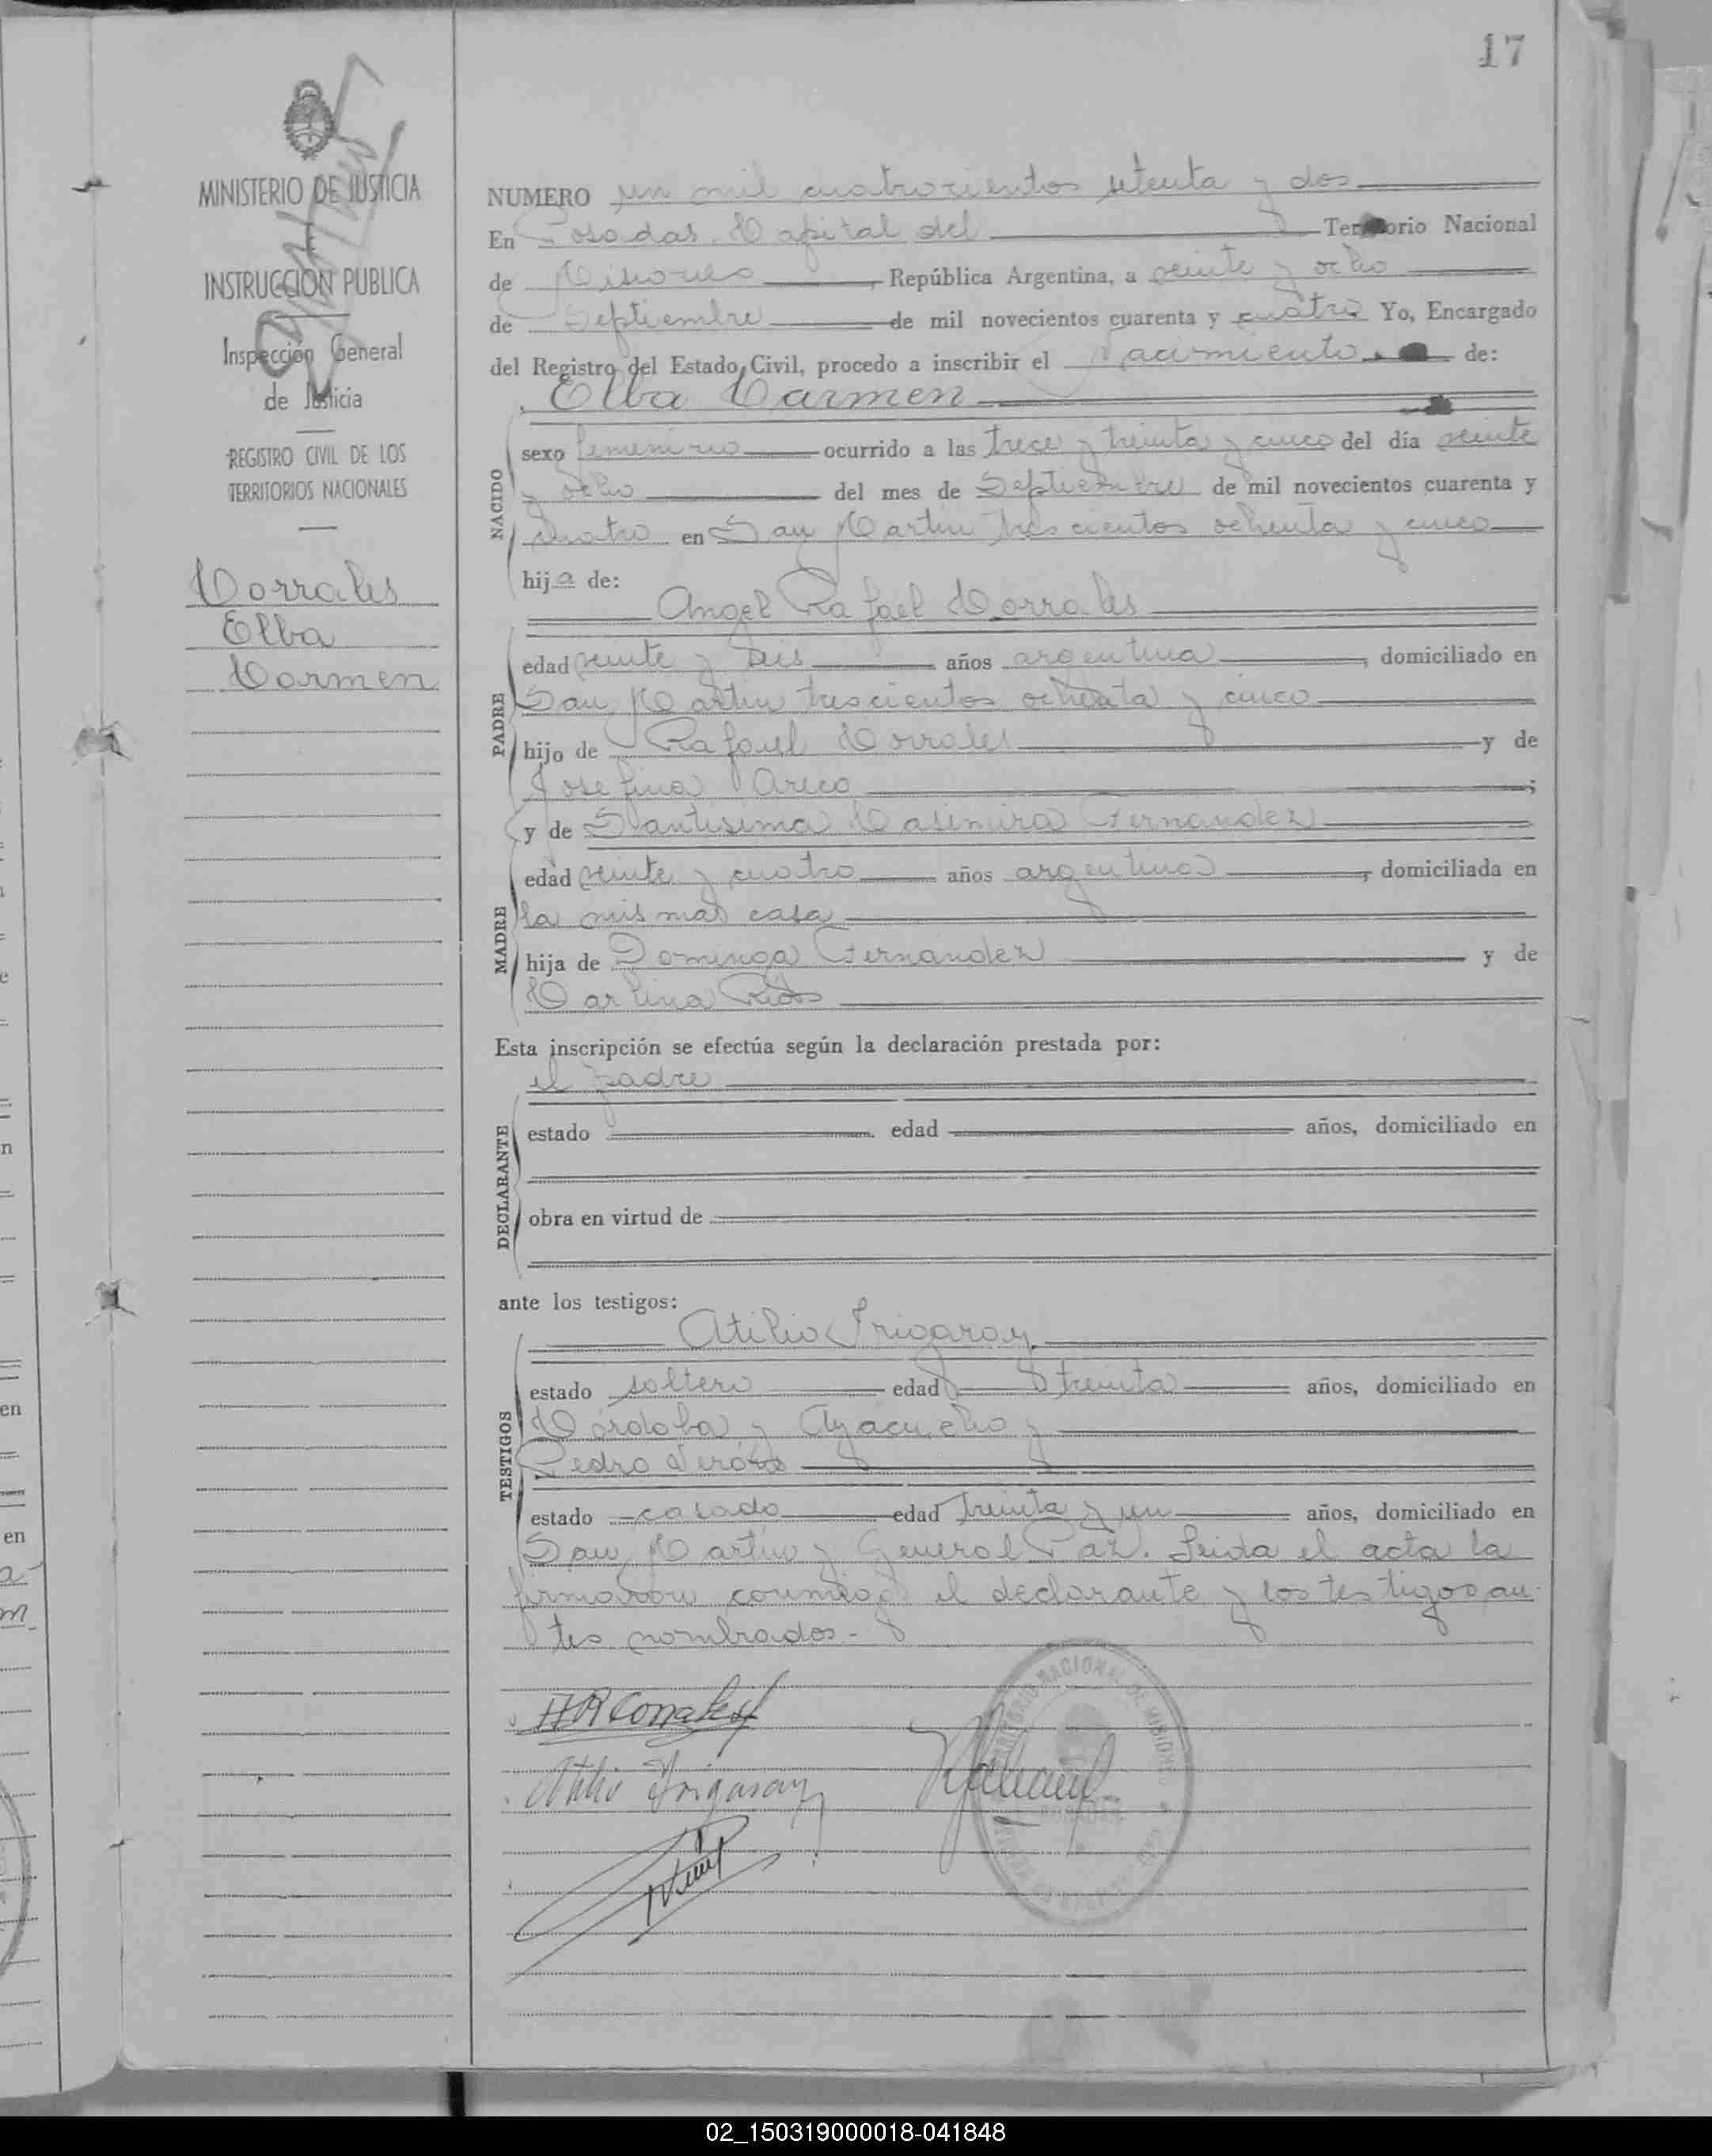 17
MINISTERIO DE JUSTICIA
INSTRUCCION PUBLICA
Inspección General
de Justicia
REGISTRO CIVIL DE LOS
TERRITORIOS NACIONALES
Corrales
Elba
Carmen
NUMERO un mil cuatrocientos setenta y dos
En Posadas, Capital del Territorio Nacional
de Misiones, República Argentina, a veinte y ocho
de Septiembre de mil novecientos cuarenta y cuatro Yo, Encargado
del Registro del Estado Civil, procedo a inscribir el nacimiento de:
Elba Carmen
NACIDO
sexo femenino ocurrido a las trece y treinta y cinco del día veinte
y ocho del mes de Septiembre de mil novecientos cuarenta y
cuatro en San Martin trescientos ochenta y cinco
hija de:
Angel Rafael Corrales
PADRE
edad veinte y seis años argentina, domiciliado en
San Martin trescientos ochenta y cinco
hijo de Rafael Corrales y de
Josefina Areco;
y de Santisima Casimira Fernandez
MADRE
edad veinte y cuatro años argentina, domiciliada en
la misma casa
hija de Dominga Fernandez y de
Esta inscripción se efectúa según la declaración prestada por:
el padre
DECLARANTE
estado edad años, domiciliado en
obra en virtud de
ante los testigos:
Atilio Irigaray
TESTIGOS
estado soltero edad treinta años, domiciliado en
Córdoba y Ayacucho y
Pedro
estado casado edad treinta y un años, domiciliado en
San Martin y General Paz. Leida el acta la
firmaron conmigo el declarante y los testigos an-
tes nombrados.-
ARCorrales
Atilio Irigaray
02_150319000018-041848